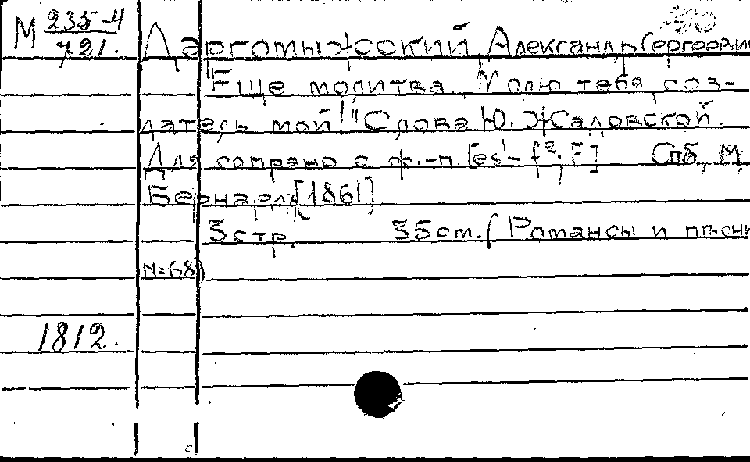 М 235-4
721. Даргомыжский, Александр Сергеевич
"Еще молитва. Молю тебя, соз-
датель мой!" Слова Ю. Жадовской.
Для сопрано с ф.-п. [es¹-f²; F] Спб, М.
Бернард [1861]
5 стр. 35 см. (Романсы и песни
N=68)
1812.